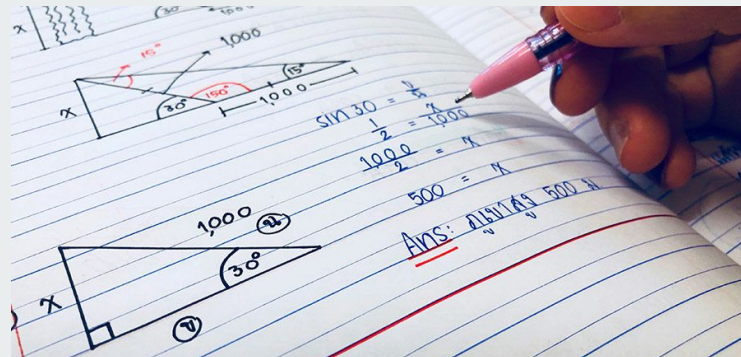 x
30°
1,000
15°
1,000
x
30°
150°
15°
1,000
sin 30 = ข/ฉ
1/2 = x/1,000
1,000/2 = x
500 = x
Ans: ภูเขาสูง 500 ม
1,000 ฉ
x
30°
ข